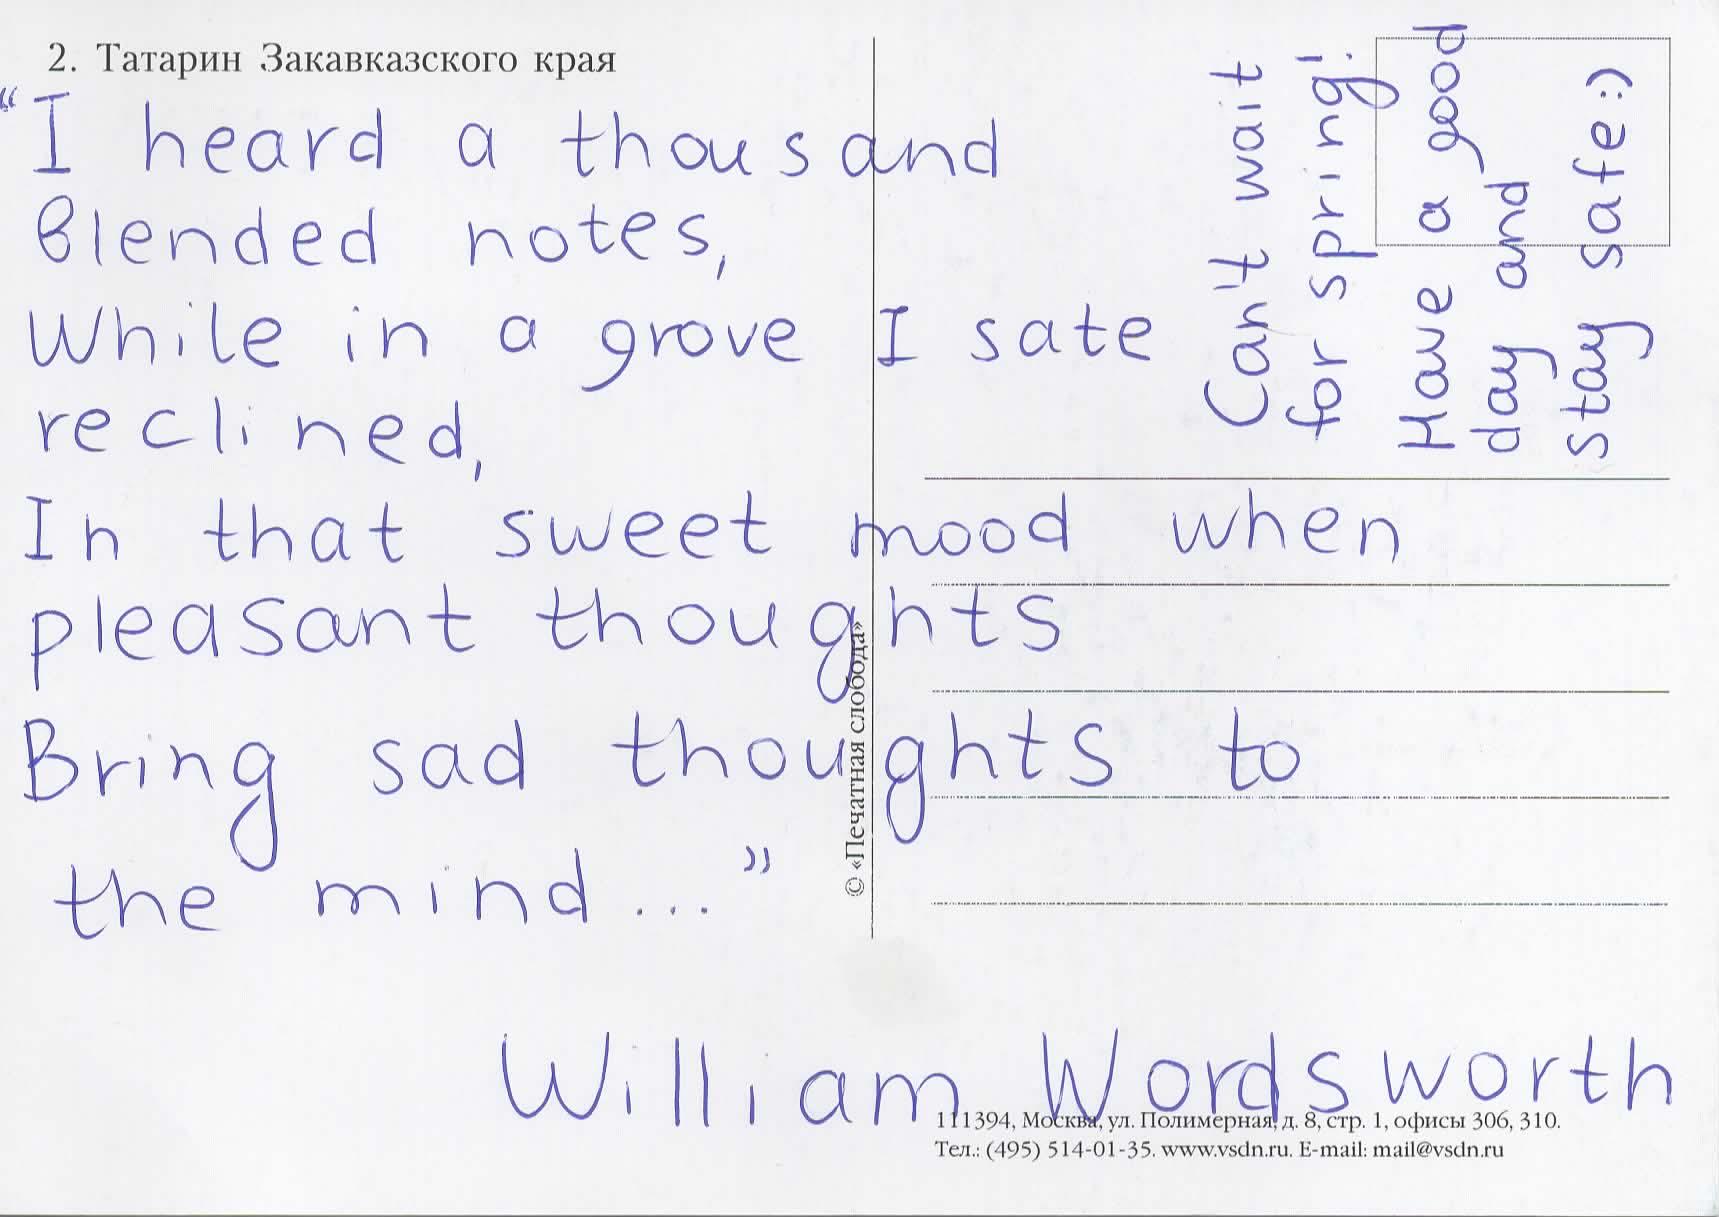 2. Татарин Закавказского края
“I heard a thousand
blended notes,
While in a grove I sate
reclined,
In that sweet mood when
pleasant thoughts
Bring sad thoughts to
the mind...”
William Wordsworth
Can't wait
for spring!
Have a good
day and
stay safe:)
© «Печатная слобода»
111394, Москва, ул. Полимерная, д. 8, стр. 1, офисы 306, 310.
Тел.: (495) 514-01-35. www.vsdn.ru. E-mail: mail@vsdn.ru